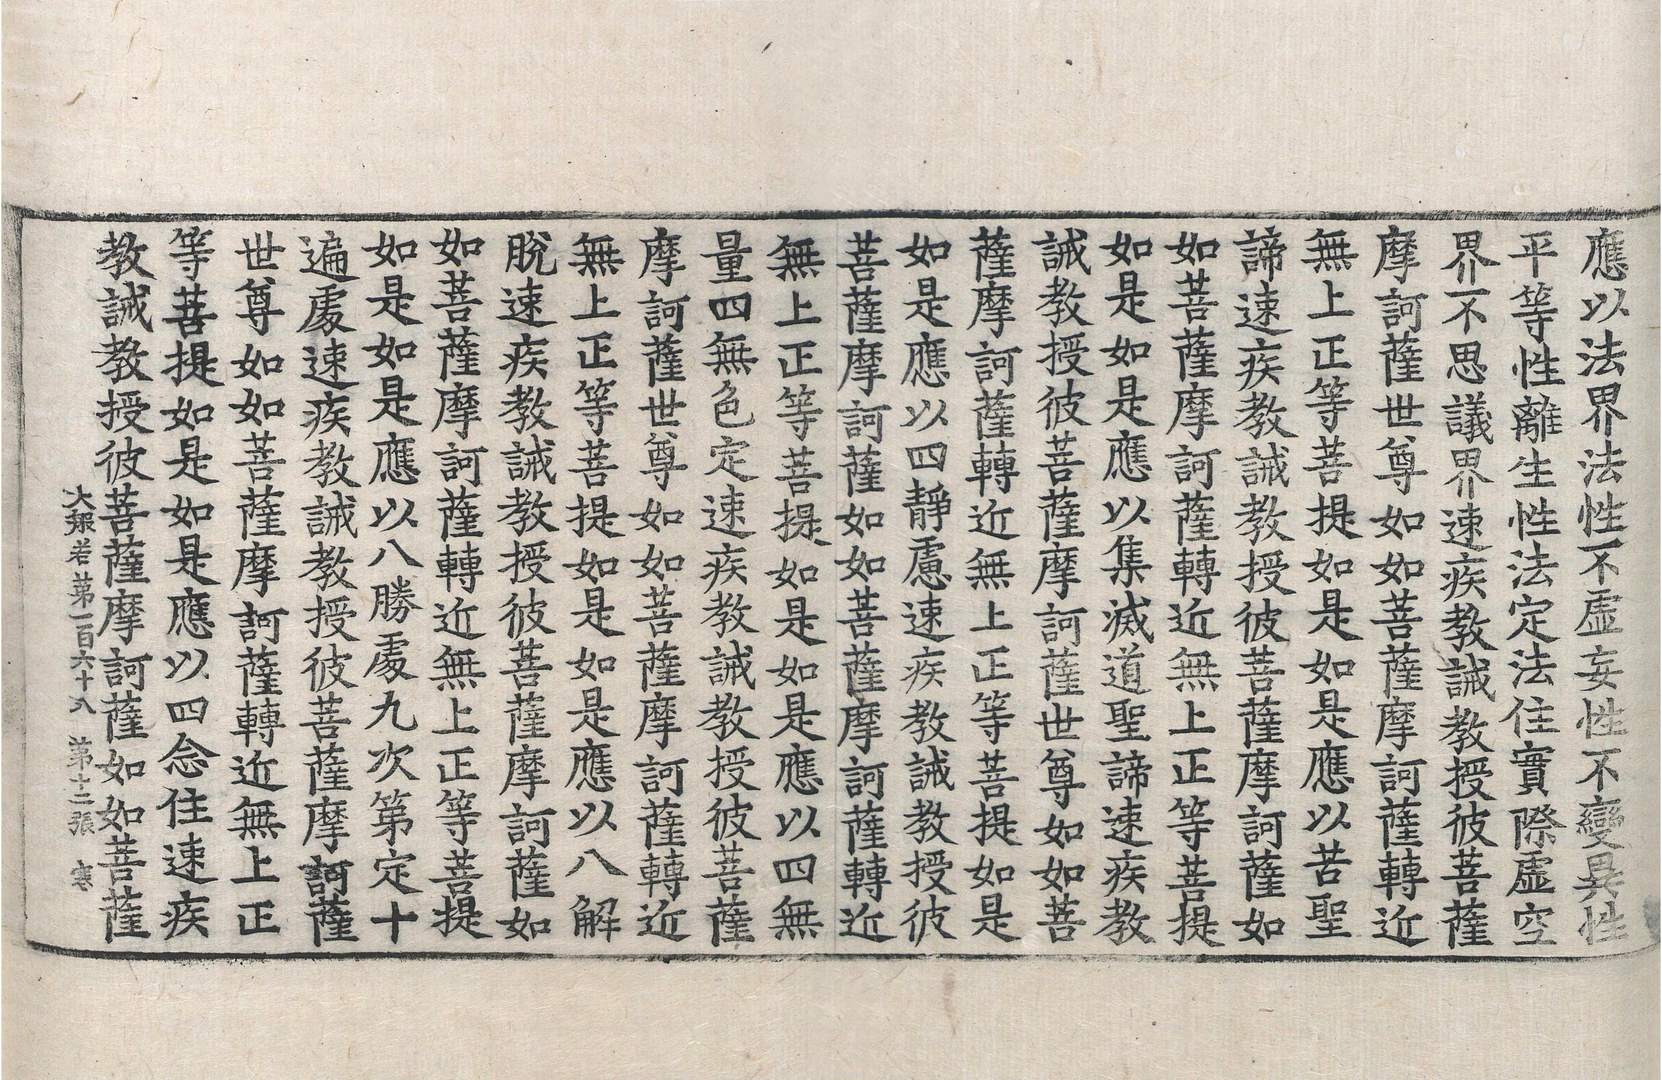 應以法界法性不虛妄性不變異性
平等性離生性法定法住實際虛空
界不思議界速疾教誡教授彼菩薩
摩訶薩世尊如如菩薩摩訶薩轉近
無上正等菩提如是如是應以苦聖
諦速疾教誡教授彼菩薩摩訶薩如
如菩薩摩訶薩轉近無上正等菩提
如是如是應以集滅道聖諦速疾教
誡教授彼菩薩摩訶薩世尊如如菩
薩摩訶薩轉近無上正等菩提如是
如是應以四靜慮速疾教誡教授彼
菩薩摩訶薩如如菩薩摩訶薩轉近
無上正等菩提如是如是應以四無
量四無色定速疾教誡教授彼菩薩
摩訶薩世尊如如菩薩摩訶薩轉近
無上正等菩提如是如是應以八解
脫速疾教誡教授彼菩薩摩訶薩如
如菩薩摩訶薩轉近無上正等菩提
如是如是應以八勝處九次第定十
遍處速疾教誡教授彼菩薩摩訶薩
世尊如如菩薩摩訶薩轉近無上正
等菩提如是如是應以四念住速疾
教誡教授彼菩薩摩訶薩如如菩薩
大般若第一百六十八 第十二張 寒